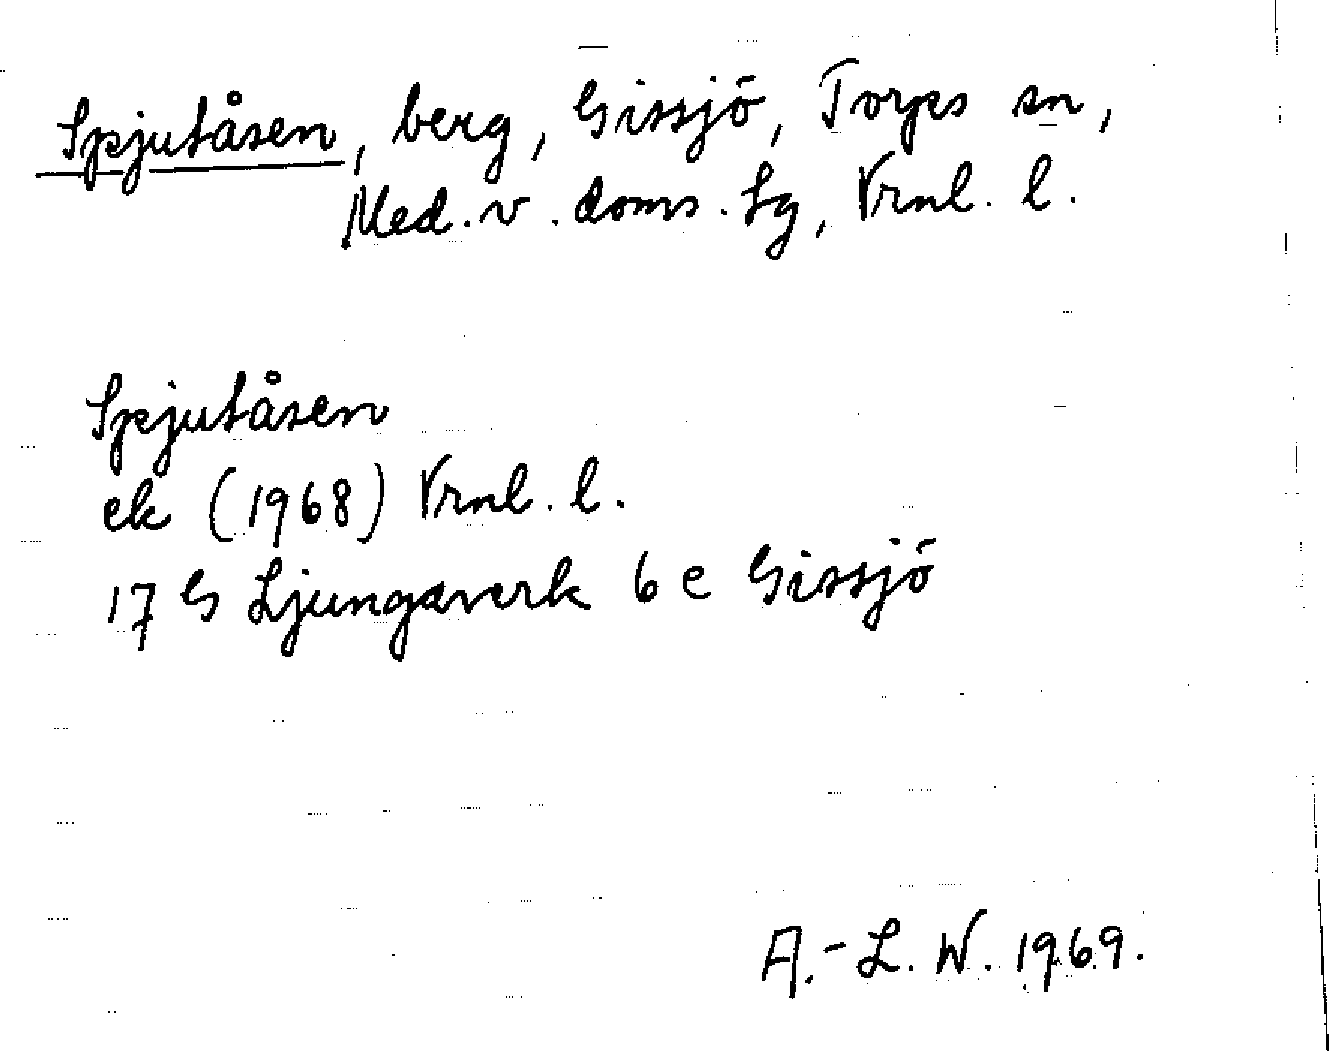 Spjutåsen, berg, Gissjö, Torps sn,
Med. v. doms. Lg, Vrnl. l.
Spjutåsen
ek (1968) Vrnl. l.
17 G Ljungaverk 6 e Gissjö
A.-L. W. 1969.